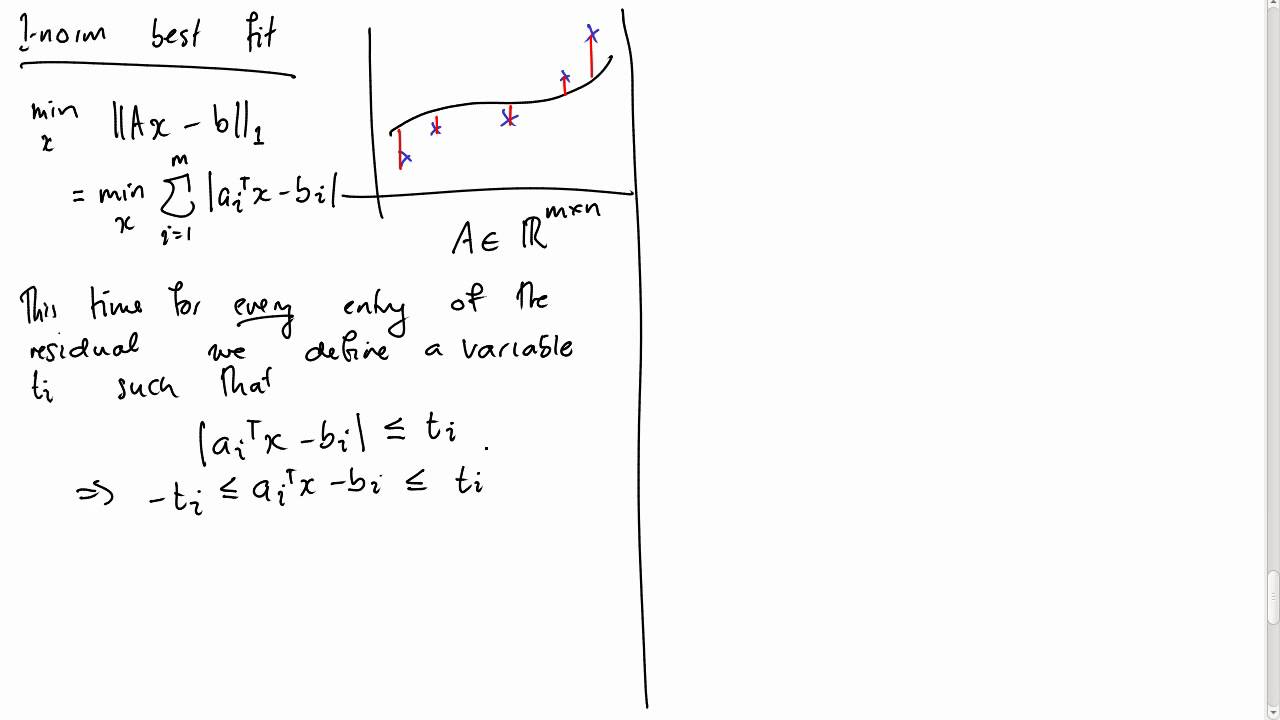 1-norm best fit
min ‖Ax - b‖₁
x
= min ∑ |aᵢᵀx - bᵢ|
x i=1 m
A ∈ ℝᵐˣⁿ
This time for every entry of the
residual we define a variable
tᵢ such that
|aᵢᵀx - bᵢ| ≤ tᵢ .
⇒ -tᵢ ≤ aᵢᵀx - bᵢ ≤ tᵢ